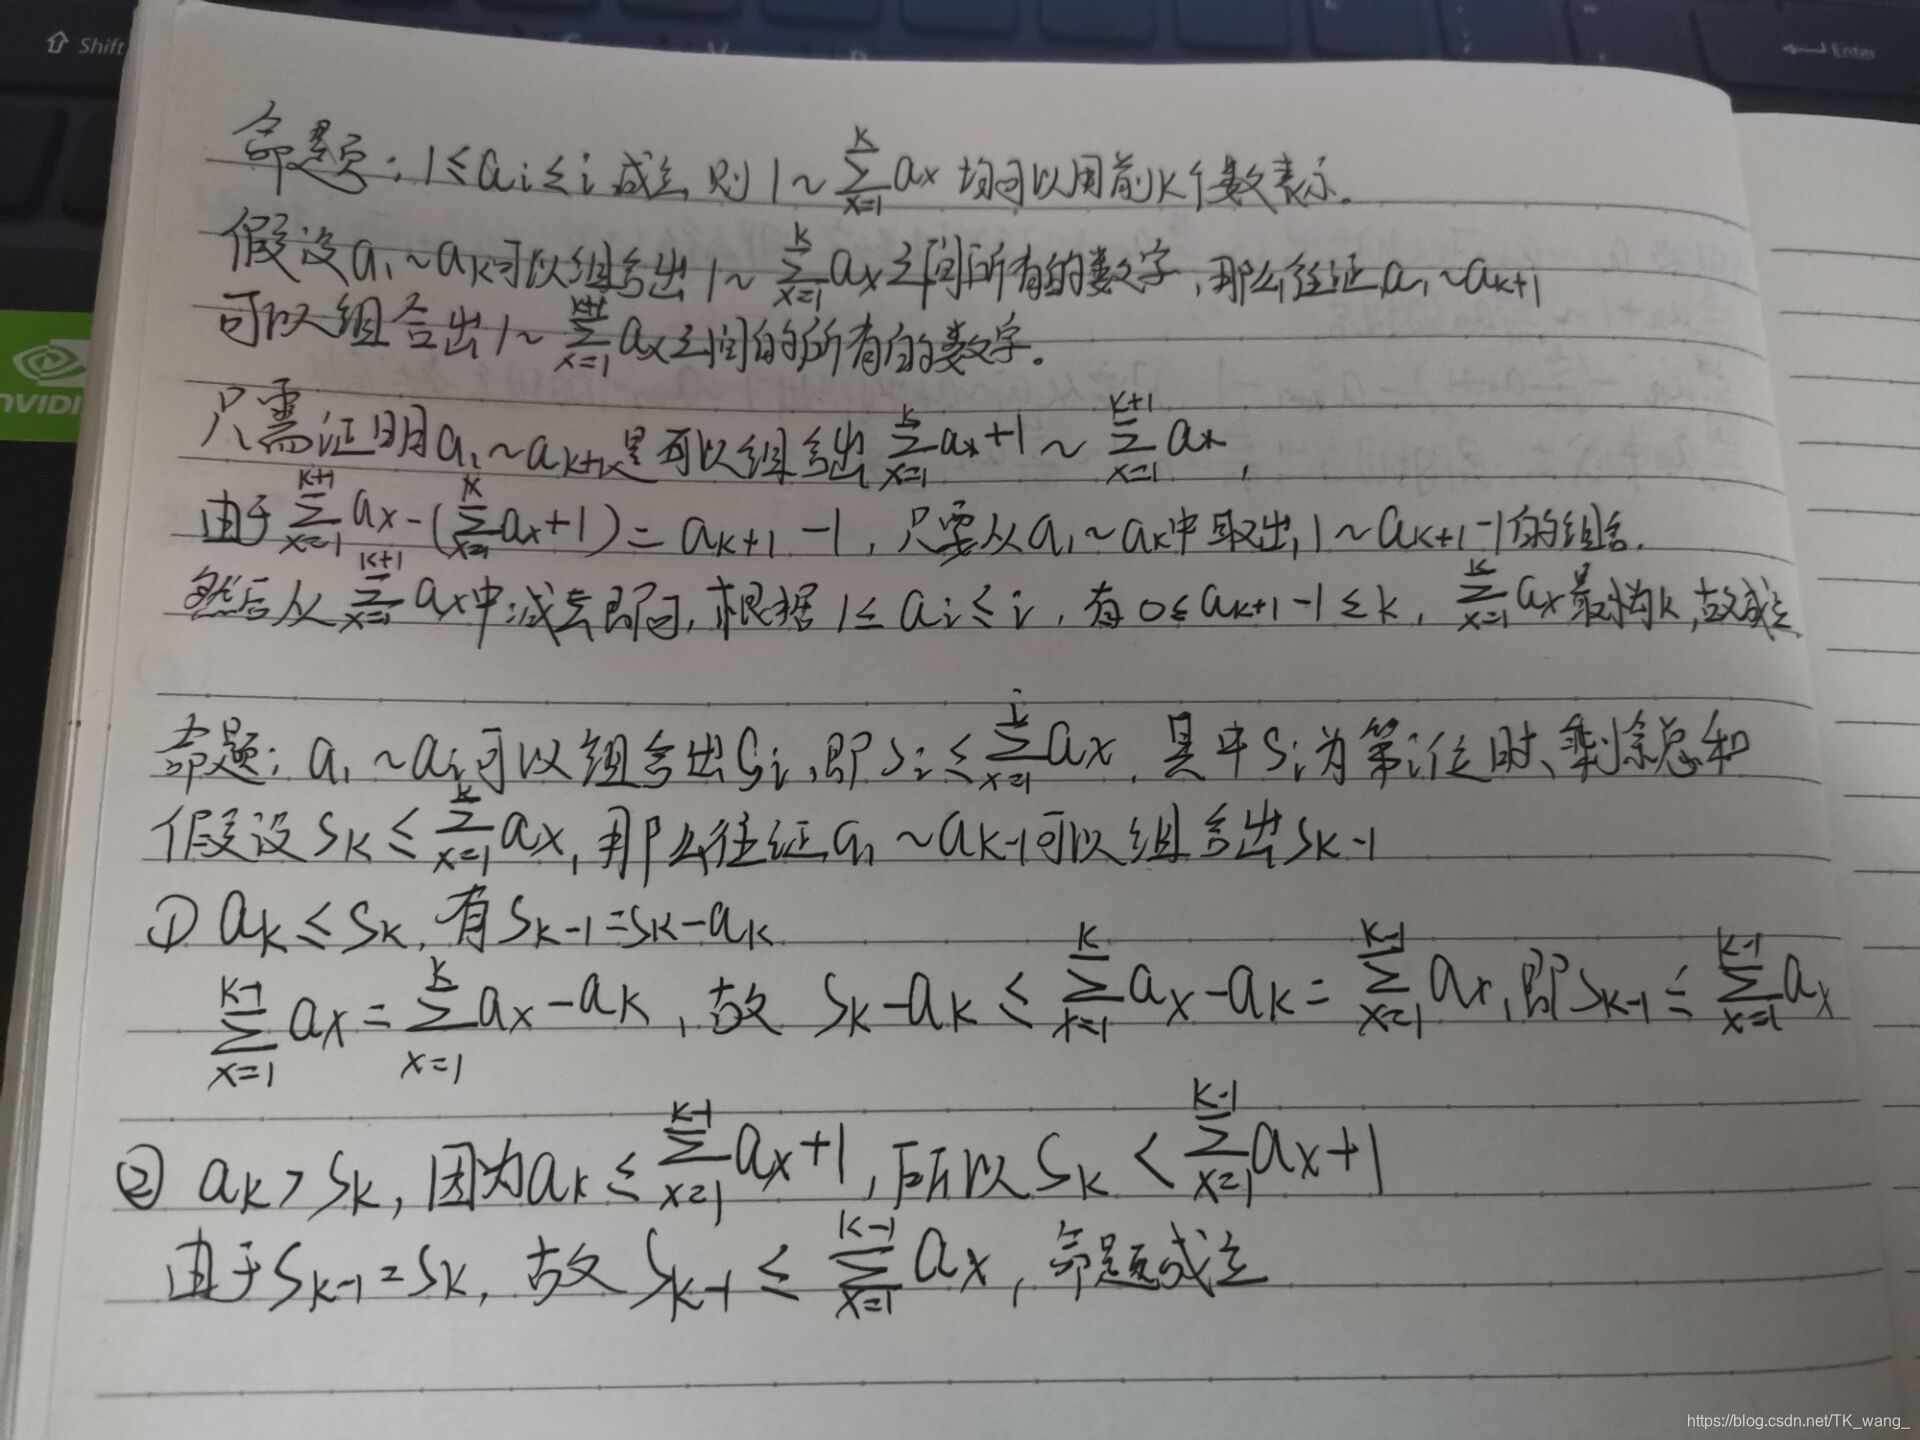 Shift
Enter
NVIDI
命题：1≤ai≤i 成立，则 1~∑_{x=1}^{k} ax 均可以用前k个数表示。
假设a1~ak可以组合出1~∑_{x=1}^{k} ax之间所有的数字，那么往证a1~ak+1
可以组合出1~∑_{x=1}^{k+1} ax之间的所有的数字。
只需证明a1~ak+1是可以组合出∑_{x=1}^{k} ax+1~∑_{x=1}^{k+1} ax，
由于∑_{x=1}^{k+1} ax-(∑_{x=1}^{k} ax+1)=ak+1-1，只要从a1~ak中取出1~ak+1-1的组合.
然后从∑_{x=1}^{k+1} ax中减去即可，根据1≤ai≤i，有0≤ak+1-1≤k，∑_{x=1}^{k} ax最小为k，故成立
命题：a1~ai可以组合出Si，即Si≤∑_{x=1}^{i} ax，其中Si为第i位时、剩余总和
假设Sk≤∑_{x=1}^{k} ax，那么往证a1~ak-1可以组合出Sk-1
① ak≤Sk，有Sk-1=Sk-ak
∑_{x=1}^{k-1} ax=∑_{x=1}^{k} ax-ak，故 Sk-ak≤∑_{x=1}^{k} ax-ak=∑_{x=1}^{k-1} ax，即Sk-1≤∑_{x=1}^{k-1} ax
② ak>Sk，因为ak≤∑_{x=1}^{k-1} ax+1，所以Sk<∑_{x=1}^{k-1} ax+1
由于Sk-1=Sk，故Sk-1≤∑_{x=1}^{k-1} ax，命题成立
https://blog.csdn.net/TK_wang_